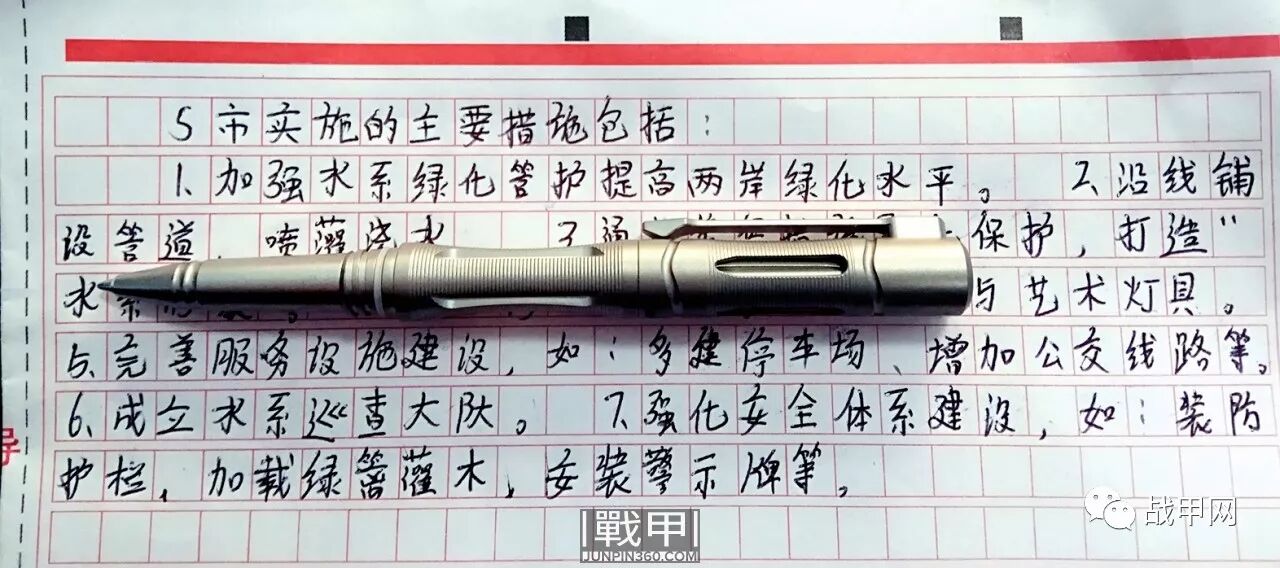 S市实施的主要措施包括：
1、加强水系绿化管护提高两岸绿化水平。 2、沿线铺
设管道，喷灌浇水 3 通 保护，打造“
水系 与艺术灯具。
5、完善服务设施建设，如：多建停车场、增加公交线路等。
6、成立水系巡查大队。 7、强化安全体系建设，如：装防
护栏，加载绿篱灌木，安装警示牌等。
导
战甲网
戰甲
JUNPIN360.COM